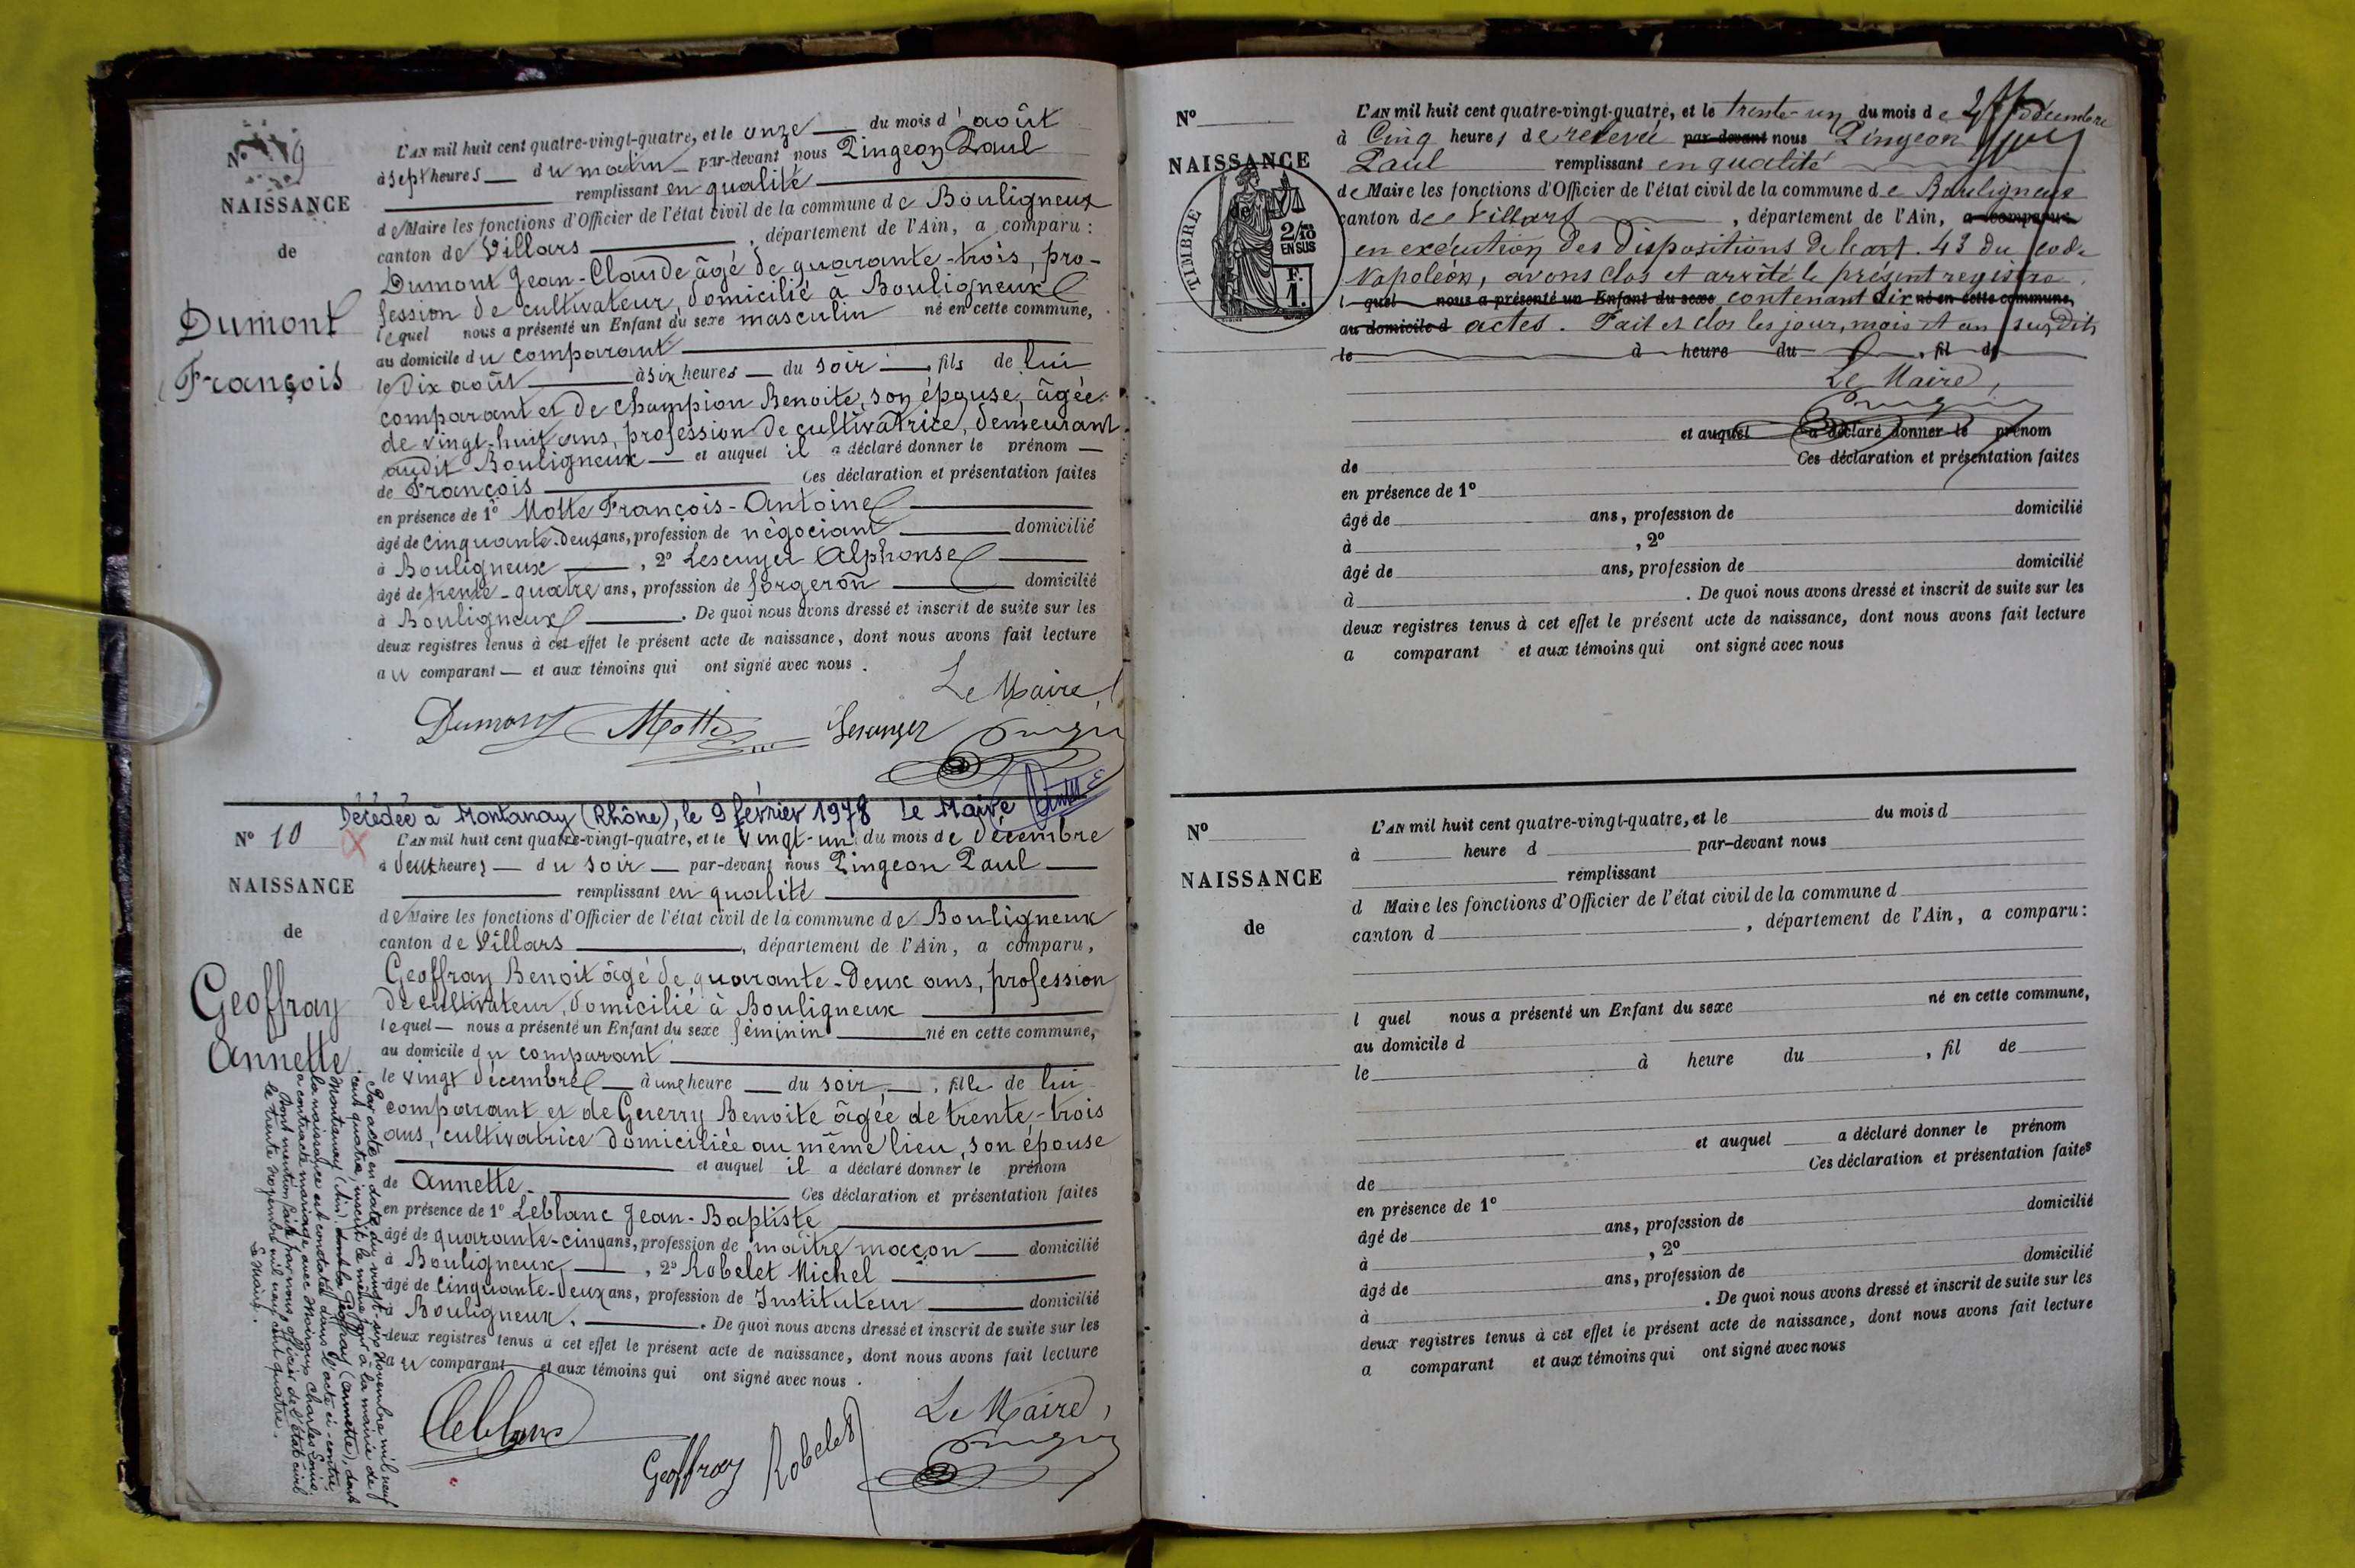 Nº 9
NAISSANCE
de
Dumont
François
L'AN mil huit cent quatre-vingt-quatre, et le onze du mois d'août
à sept heures du matin par-devant nous Pingeon Paul
remplissant en qualité
de Maire les fonctions d'Officier de l'état civil de la commune de Bouligneux
canton de Villars, département de l'Ain, a comparu :
Dumont Jean-Claude âgé de quarante-trois, pro-
fession de cultivateur, domicilié à Bouligneux
lequel nous a présenté un Enfant du sexe masculin né en cette commune,
au domicile du comparant
le dix août à six heures du soir, fils de lui
comparant et de Champion Benoite, son épouse, âgée
de vingt-huit ans, profession de cultivatrice, demeurant
audit Bouligneux et auquel il a déclaré donner le prénom
de François Ces déclaration et présentation faites
en présence de 1º Motte François-Antoine
âgé de cinquante-deux ans, profession de négociant domicilié
à Bouligneux, 2º Lescuyer Alphonse
âgé de trente-quatre ans, profession de forgeron domicilié
à Bouligneux. De quoi nous avons dressé et inscrit de suite sur les
deux registres tenus à cet effet le présent acte de naissance, dont nous avons fait lecture
au comparant et aux témoins qui ont signé avec nous.
Le Maire,
Dumont Motte Lescuyer Pingeon
Décédée à Montanay (Rhône), le 9 février 1978 Le Maire
Nº 10
NAISSANCE
de
Geoffray
Annette.
L'AN mil huit cent quatre-vingt-quatre, et le vingt-un du mois de décembre
à deux heures du soir par-devant nous Pingeon Paul
remplissant en qualité
de Maire les fonctions d'Officier de l'état civil de la commune de Bouligneux
canton de Villars, département de l'Ain, a comparu,
Geoffray Benoit âgé de quarante-deux ans, profession
de cultivateur, domicilié à Bouligneux
lequel nous a présenté un Enfant du sexe féminin né en cette commune,
au domicile du comparant
le vingt décembre à une heure du soir, fille de lui
comparant et de Guerry Benoite âgée de trente-trois
ans, cultivatrice domiciliée au même lieu, son épouse
et auquel il a déclaré donner le prénom
de Annette. Ces déclaration et présentation faites
en présence de 1º Leblanc Jean-Baptiste
âgé de quarante-cinq ans, profession de maître maçon domicilié
à Bouligneux, 2º Robelet Michel
âgé de cinquante-deux ans, profession de Instituteur domicilié
à Bouligneux. De quoi nous avons dressé et inscrit de suite sur les
deux registres tenus à cet effet le présent acte de naissance, dont nous avons fait lecture
au comparant et aux témoins qui ont signé avec nous.
Le Maire,
Leblanc Geoffray Robelet Pingeon
Par acte en date du vingt-six novembre mil neuf
cent quatre, inscrit le même jour à la mairie de
Montanay (Ain) dont la Geoffray (Annette), dont
la naissance est constatée dans l'acte ci-contre,
a contracté mariage avec Moiroux Charles Louis.
Dont mention faite par nous officier de l'état civil
le trente novembre mil neuf cent quatre.
Le Maire.
Nº
NAISSANCE
de
TIMBRE
2/10
EN SUS
F.
1.
L'AN mil huit cent quatre-vingt-quatre, et le trente-un du mois de décembre
à cinq heures de relevée par-devant nous Pingeon
Paul remplissant en qualité
de Maire les fonctions d'Officier de l'état civil de la commune de Bouligneux
canton de Villars, département de l'Ain, a comparu
en exécution des dispositions de l'art. 43 du code
Napoléon, avons clos et arrêté le présent registre
l quel nous a présenté un Enfant du sexe contenant dix né en cette commune,
au domicile d actes. Fait et clos les jour, mois et an susdits
le à heure du, fil de
Le Maire,
Pingeon
et auquel a déclaré donner le prénom
de Ces déclaration et présentation faites
en présence de 1º
âgé de ans, profession de domicilié
à , 2º
âgé de ans, profession de domicilié
à . De quoi nous avons dressé et inscrit de suite sur les
deux registres tenus à cet effet le présent acte de naissance, dont nous avons fait lecture
a comparant et aux témoins qui ont signé avec nous
Nº
NAISSANCE
de
L'AN mil huit cent quatre-vingt-quatre, et le du mois d
à heure d par-devant nous
remplissant
d Maire les fonctions d'Officier de l'état civil de la commune d
canton d , département de l'Ain, a comparu :
l quel nous a présenté un Enfant du sexe né en cette commune,
au domicile d
le à heure du , fil de
et auquel a déclaré donner le prénom
de Ces déclaration et présentation faites
en présence de 1º
âgé de ans, profession de domicilié
à , 2º
âgé de ans, profession de domicilié
à . De quoi nous avons dressé et inscrit de suite sur les
deux registres tenus à cet effet le présent acte de naissance, dont nous avons fait lecture
a comparant et aux témoins qui ont signé avec nous